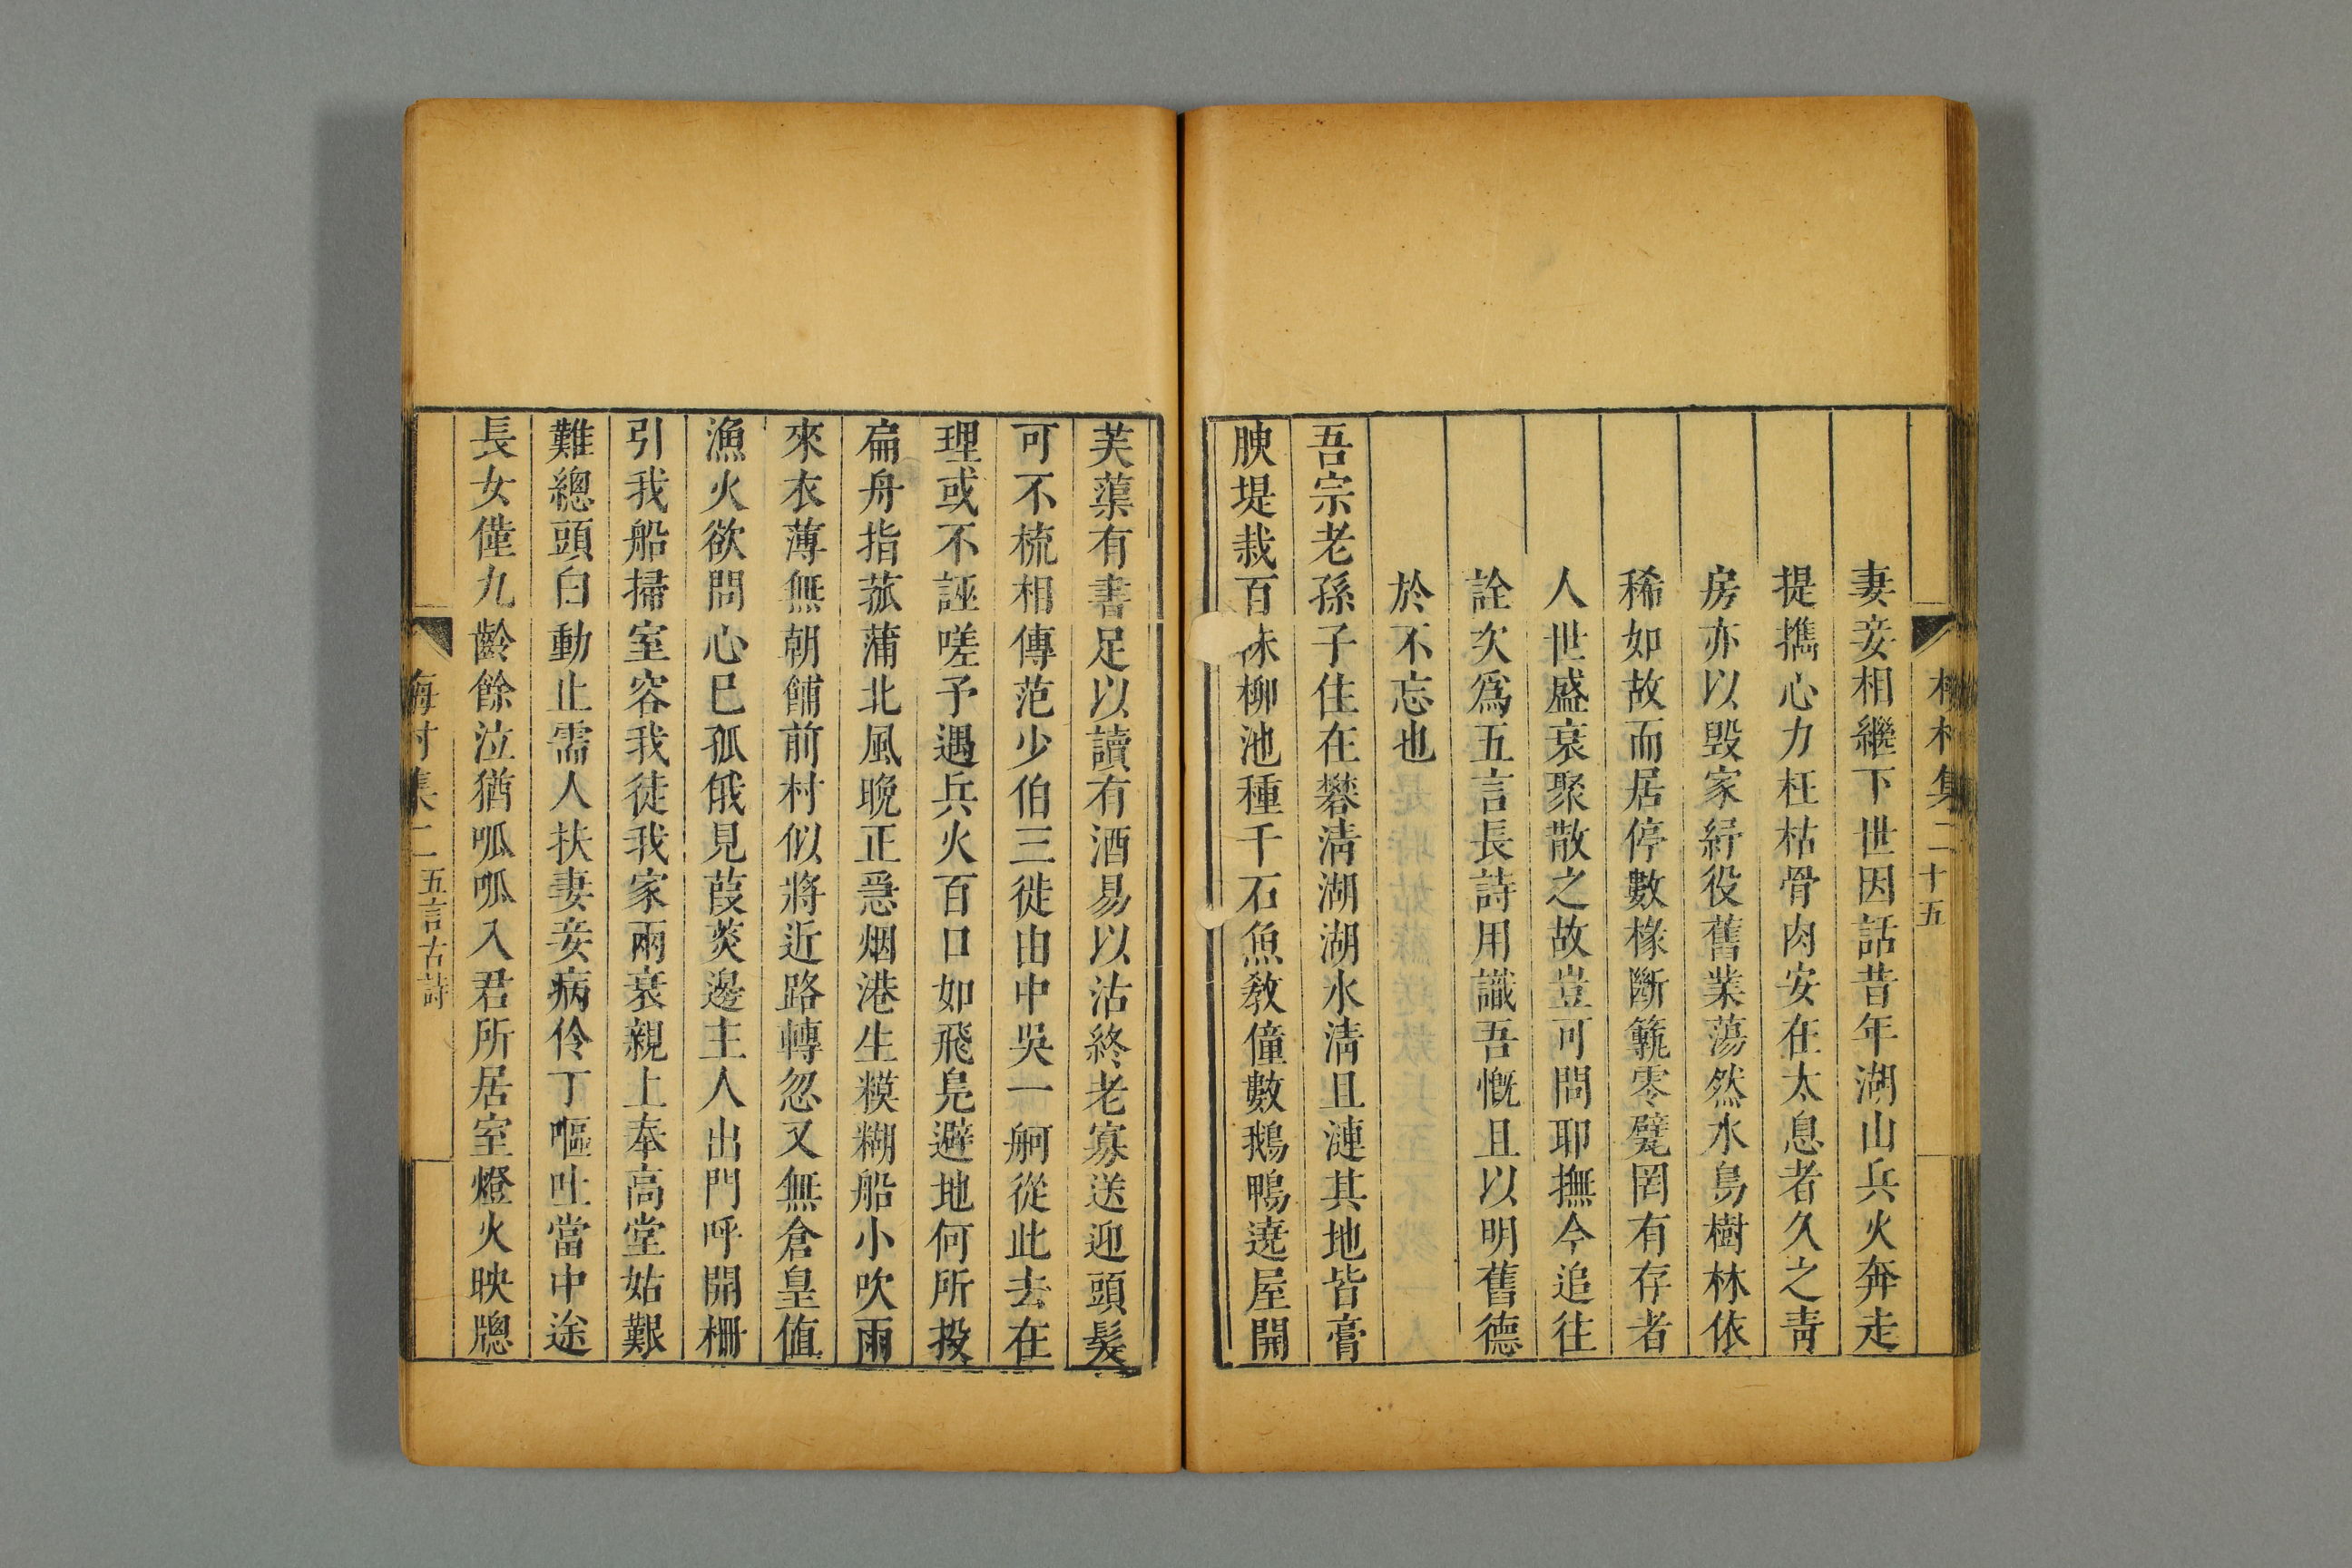 梅村集二 十五
妻妾相繼下世因話昔年湖山兵火奔走
提擕心力枉枯骨肉安在太息者久之靑
房亦以毀家紓役舊業蕩然水鳥樹林依
稀如故而居停數椽斷籬零甓罔有存者
人世盛衰聚散之故豈可問耶撫今追往
詮次爲五言長詩用識吾慨且以明舊德
於不忘也
吾宗老孫子住在礬淸湖湖水淸且漣其地皆膏
腴堤栽百株柳池種千石魚敎僮數鵝鴨遶屋開
芙蕖有書足以讀有酒易以沽終老寡送迎頭髮
可不梳相傳范少伯三徙由中吳一舸從此去在
理或不誣嗟予遇兵火百口如飛鳧避地何所投
扁舟指菰蒲北風晚正急烟港生糢糊船小吹雨
來衣薄無朝餔前村似將近路轉忽又無倉皇值
漁火欲問心已孤俄見葭菼邊主人出門呼開柵
引我船掃室容我徒我家兩衰親上奉高堂姑艱
難總頭白動止需人扶妻妾病伶丁嘔吐當中途
長女僅九齡餘泣猶呱呱入君所居室燈火映牕
梅村集二 五言古詩